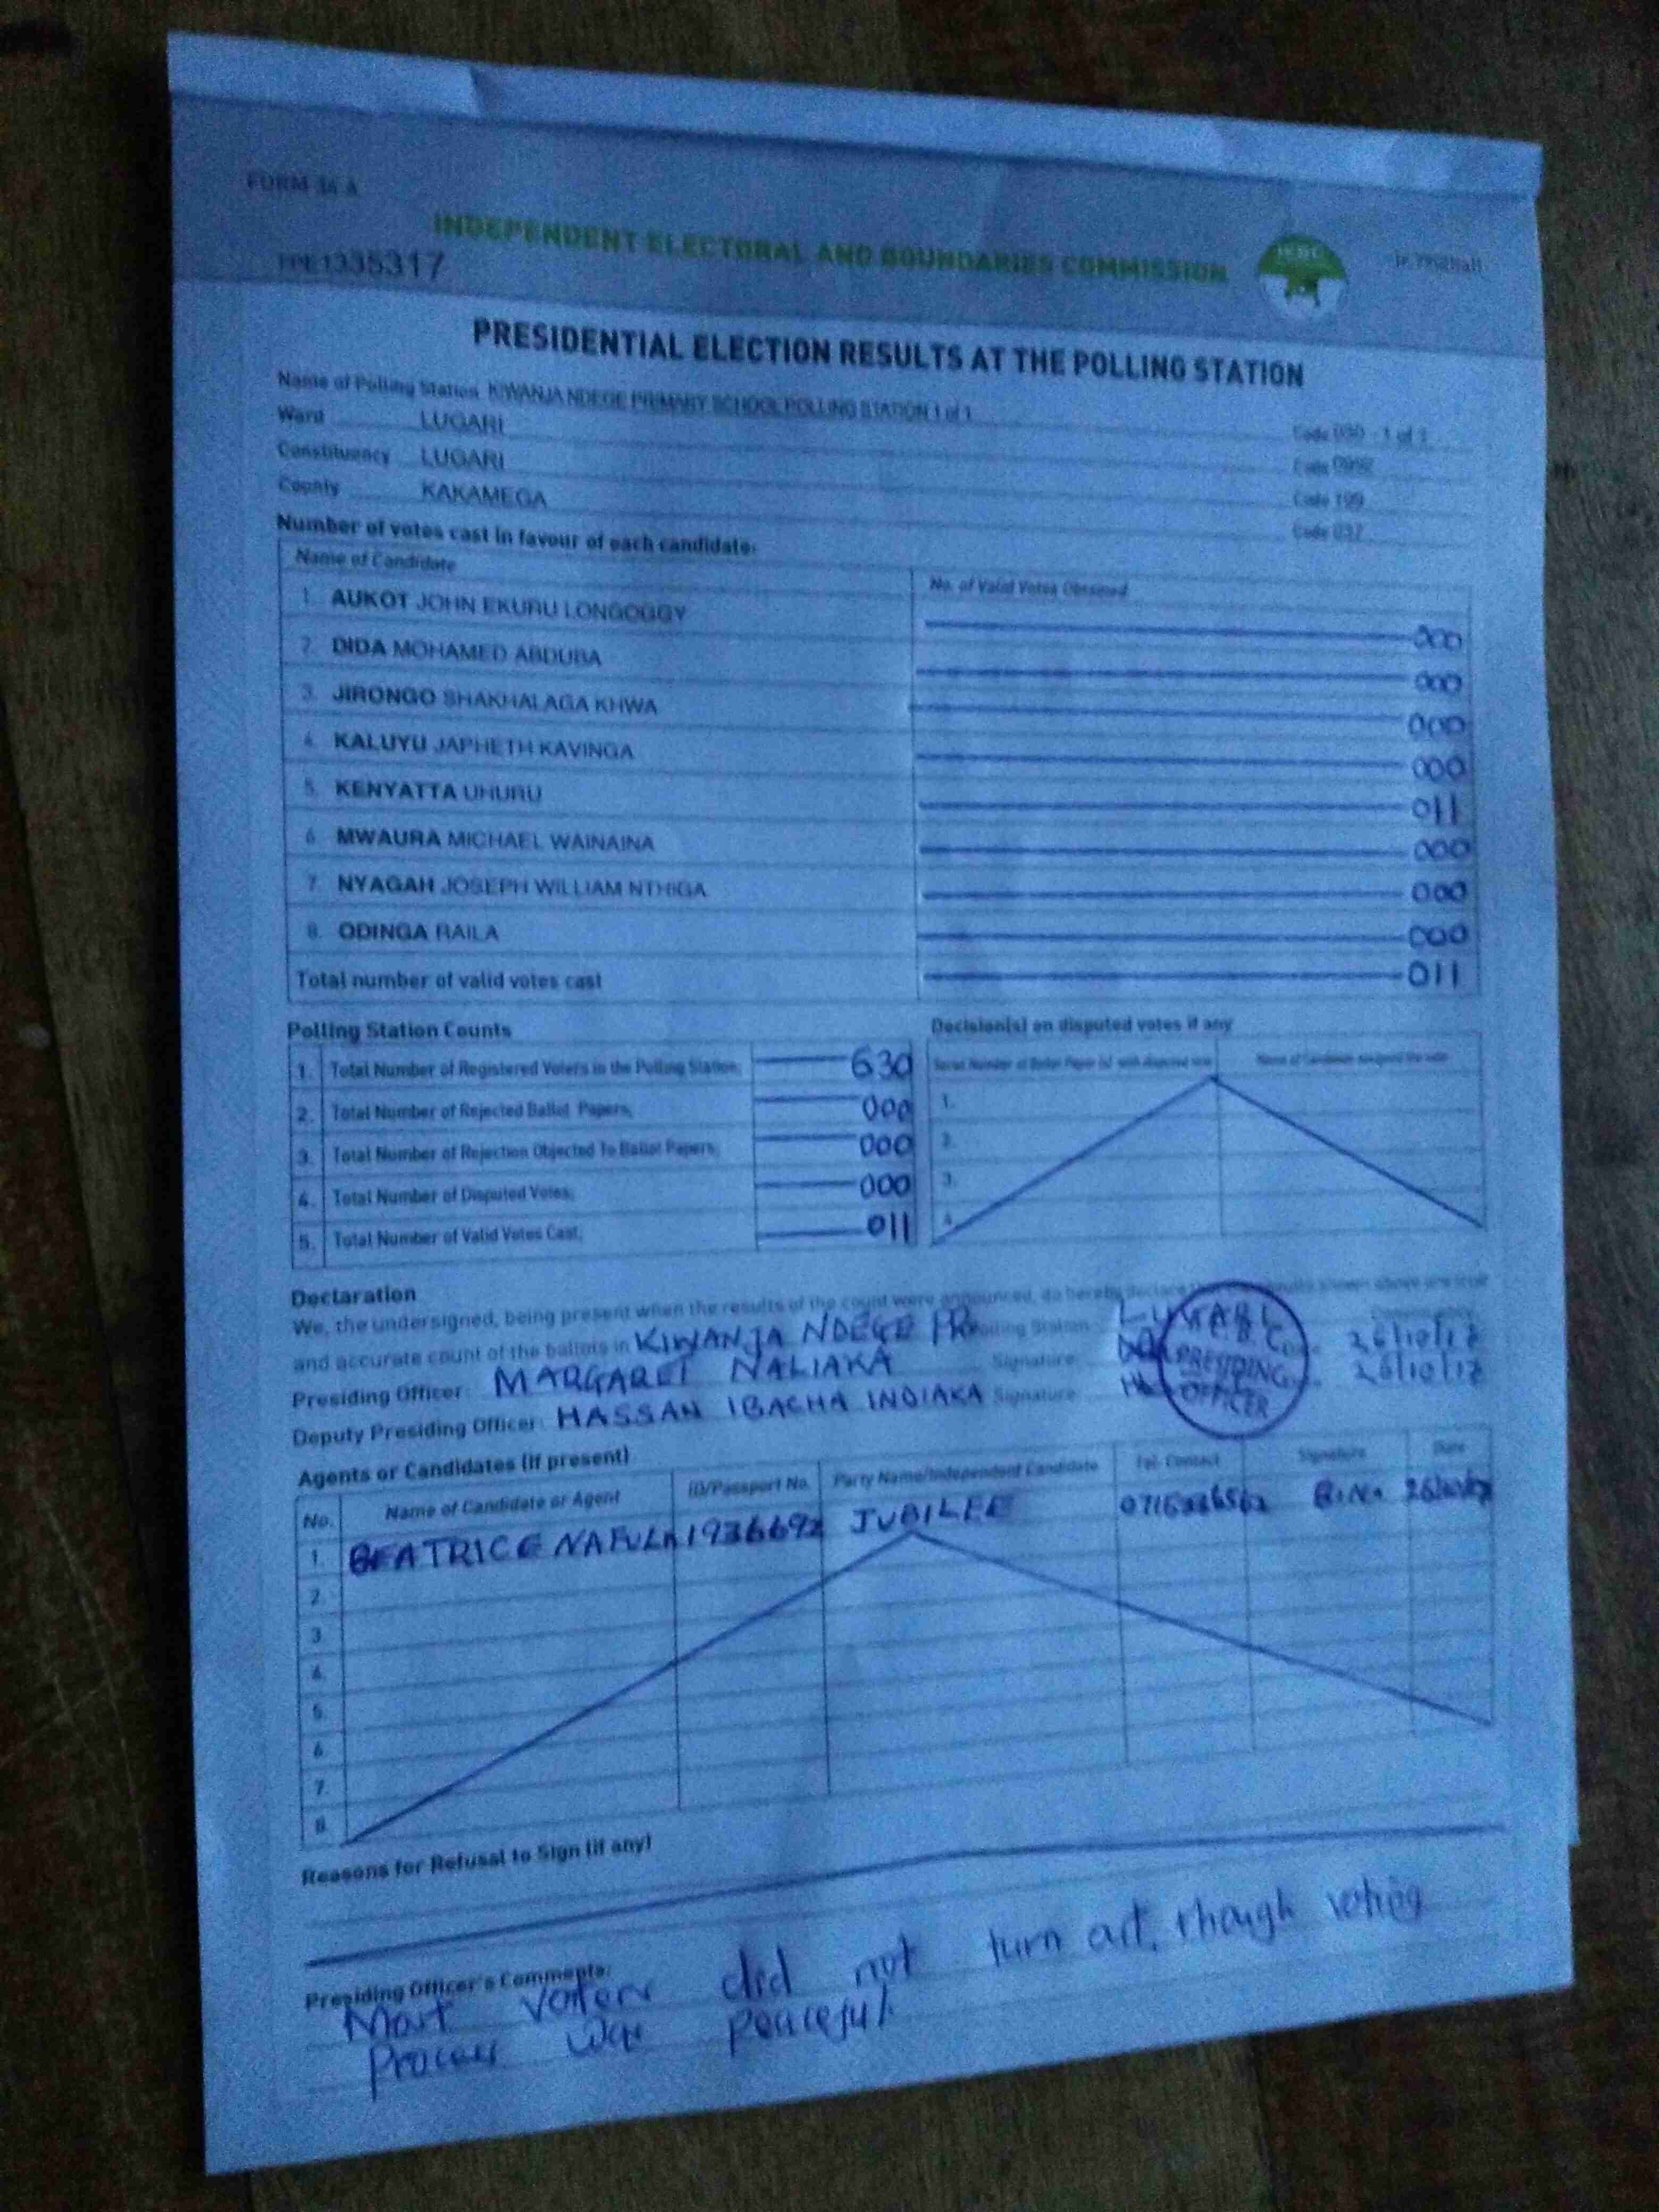 FORM 34 A
INDEPENDENT ELECTORAL AND BOUNDARIES COMMISSION
1335317
PRESIDENTIAL ELECTION RESULTS AT THE POLLING STATION
Name of Polling Station KIWANJA NDEGE PRIMARY SCHOOL POLLING STATION 1 of 1 Code 1 of 1
Ward LUGARI Code
Constituency LUGARI Code 199
County KAKAMEGA Code 037
Number of votes cast in favour of each candidate:
Name of Candidate No. of Valid Votes Obtained
1. AUKOT JOHN EKURU LONGOGGY 000
2. DIDA MOHAMED ABDUBA 000
3. JIRONGO SHAKHALAGA KHWA 000
4. KALUYU JAPHETH KAVINGA 000
5. KENYATTA UHURU 011
6. MWAURA MICHAEL WAINAINA 000
7. NYAGAH JOSEPH WILLIAM NTHIGA 000
8. ODINGA RAILA 000
Total number of valid votes cast 011
Polling Station Counts
1. Total Number of Registered Voters in the Polling Station; 630
2. Total Number of Rejected Ballot Papers; 000
3. Total Number of Rejection Objected To Ballot Papers; 000
4. Total Number of Disputed Votes; 000
5. Total Number of Valid Votes Cast; 011
Decision(s) on disputed votes if any
Serial Number of Ballot Paper (s) with disputed vote Name of Candidate assigned the vote
1.
2.
3.
4.
Declaration
We, the undersigned, being present when the results of the count were announced, do hereby declare that the results shown above are true
and accurate count of the ballots in KIWANJA NDEGE PR Polling Station LUGARI Constituency
Presiding Officer: MARGARET NALIAKA Signature: 26/10/17
Deputy Presiding Officer: HASSAN IBACHA INDIAKA Signature: 26/10/17
PRESIDING
OFFICER
Agents or Candidates (if present)
No. Name of Candidate or Agent ID/Passport No. Party Name/Independent Candidate Tel. Contact Signature Date
1. BEATRICE NAFULA JUBILEE
2.
3.
4.
5.
6.
7.
8.
Reasons for Refusal to Sign (if any)
Presiding Officer's Comments:
Most voters did not turn out, though voting
process was peaceful